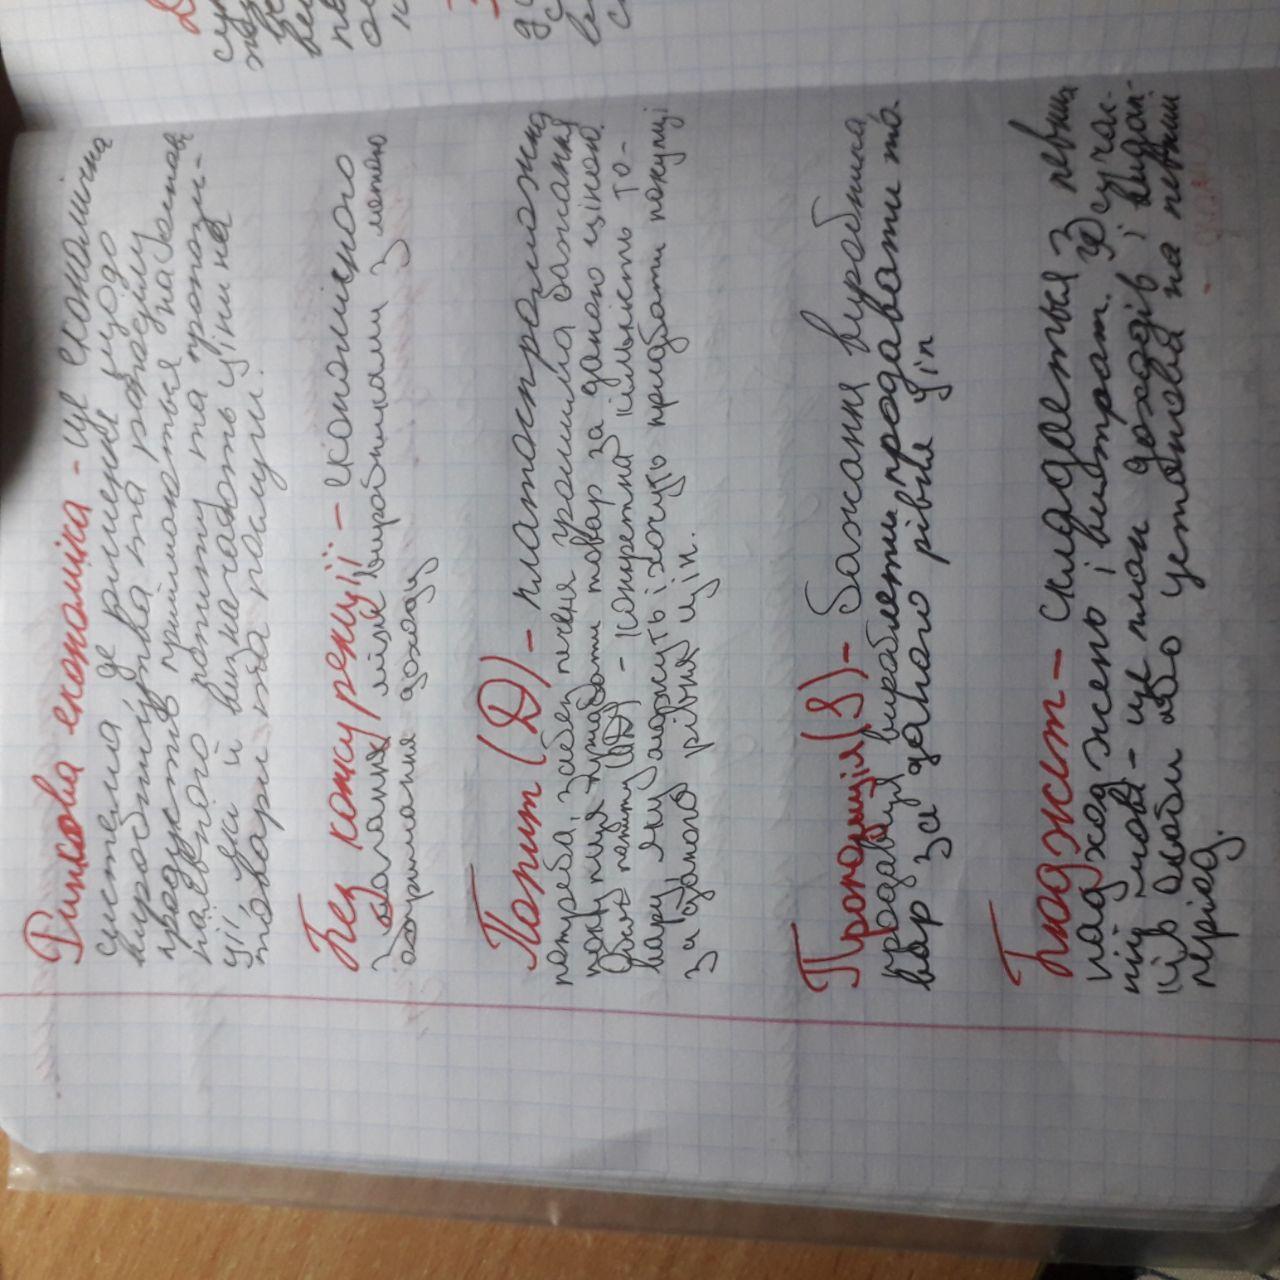 Ринкова економіка - це економічна
система, де рішення щодо
виробництва та розподілу
продуктів приймаються на основі
наявного попиту та пропози-
ції, які й визначають ціни на
товари та послуги.
Без конкуренції - економічного
змагання між виробниками з метою
отримання доходу
Попит (D) - платоспроможна
потреба, забезпечене грошима бажання
покупця придбати товар за даною ціною.
Обсяг попиту (QD) - конкретна кількість то-
вару, яку можуть і хочуть придбати покупці
за даного рівня цін.
Пропозиція (S) - бажання виробника,
продавця виробляти, продавати то-
вар за даного рівня цін
Бюджет - складається з певних
надходжень і витрат. В сучас-
ній мові - це план доходів і видат-
ків особи або установа на певний
період.